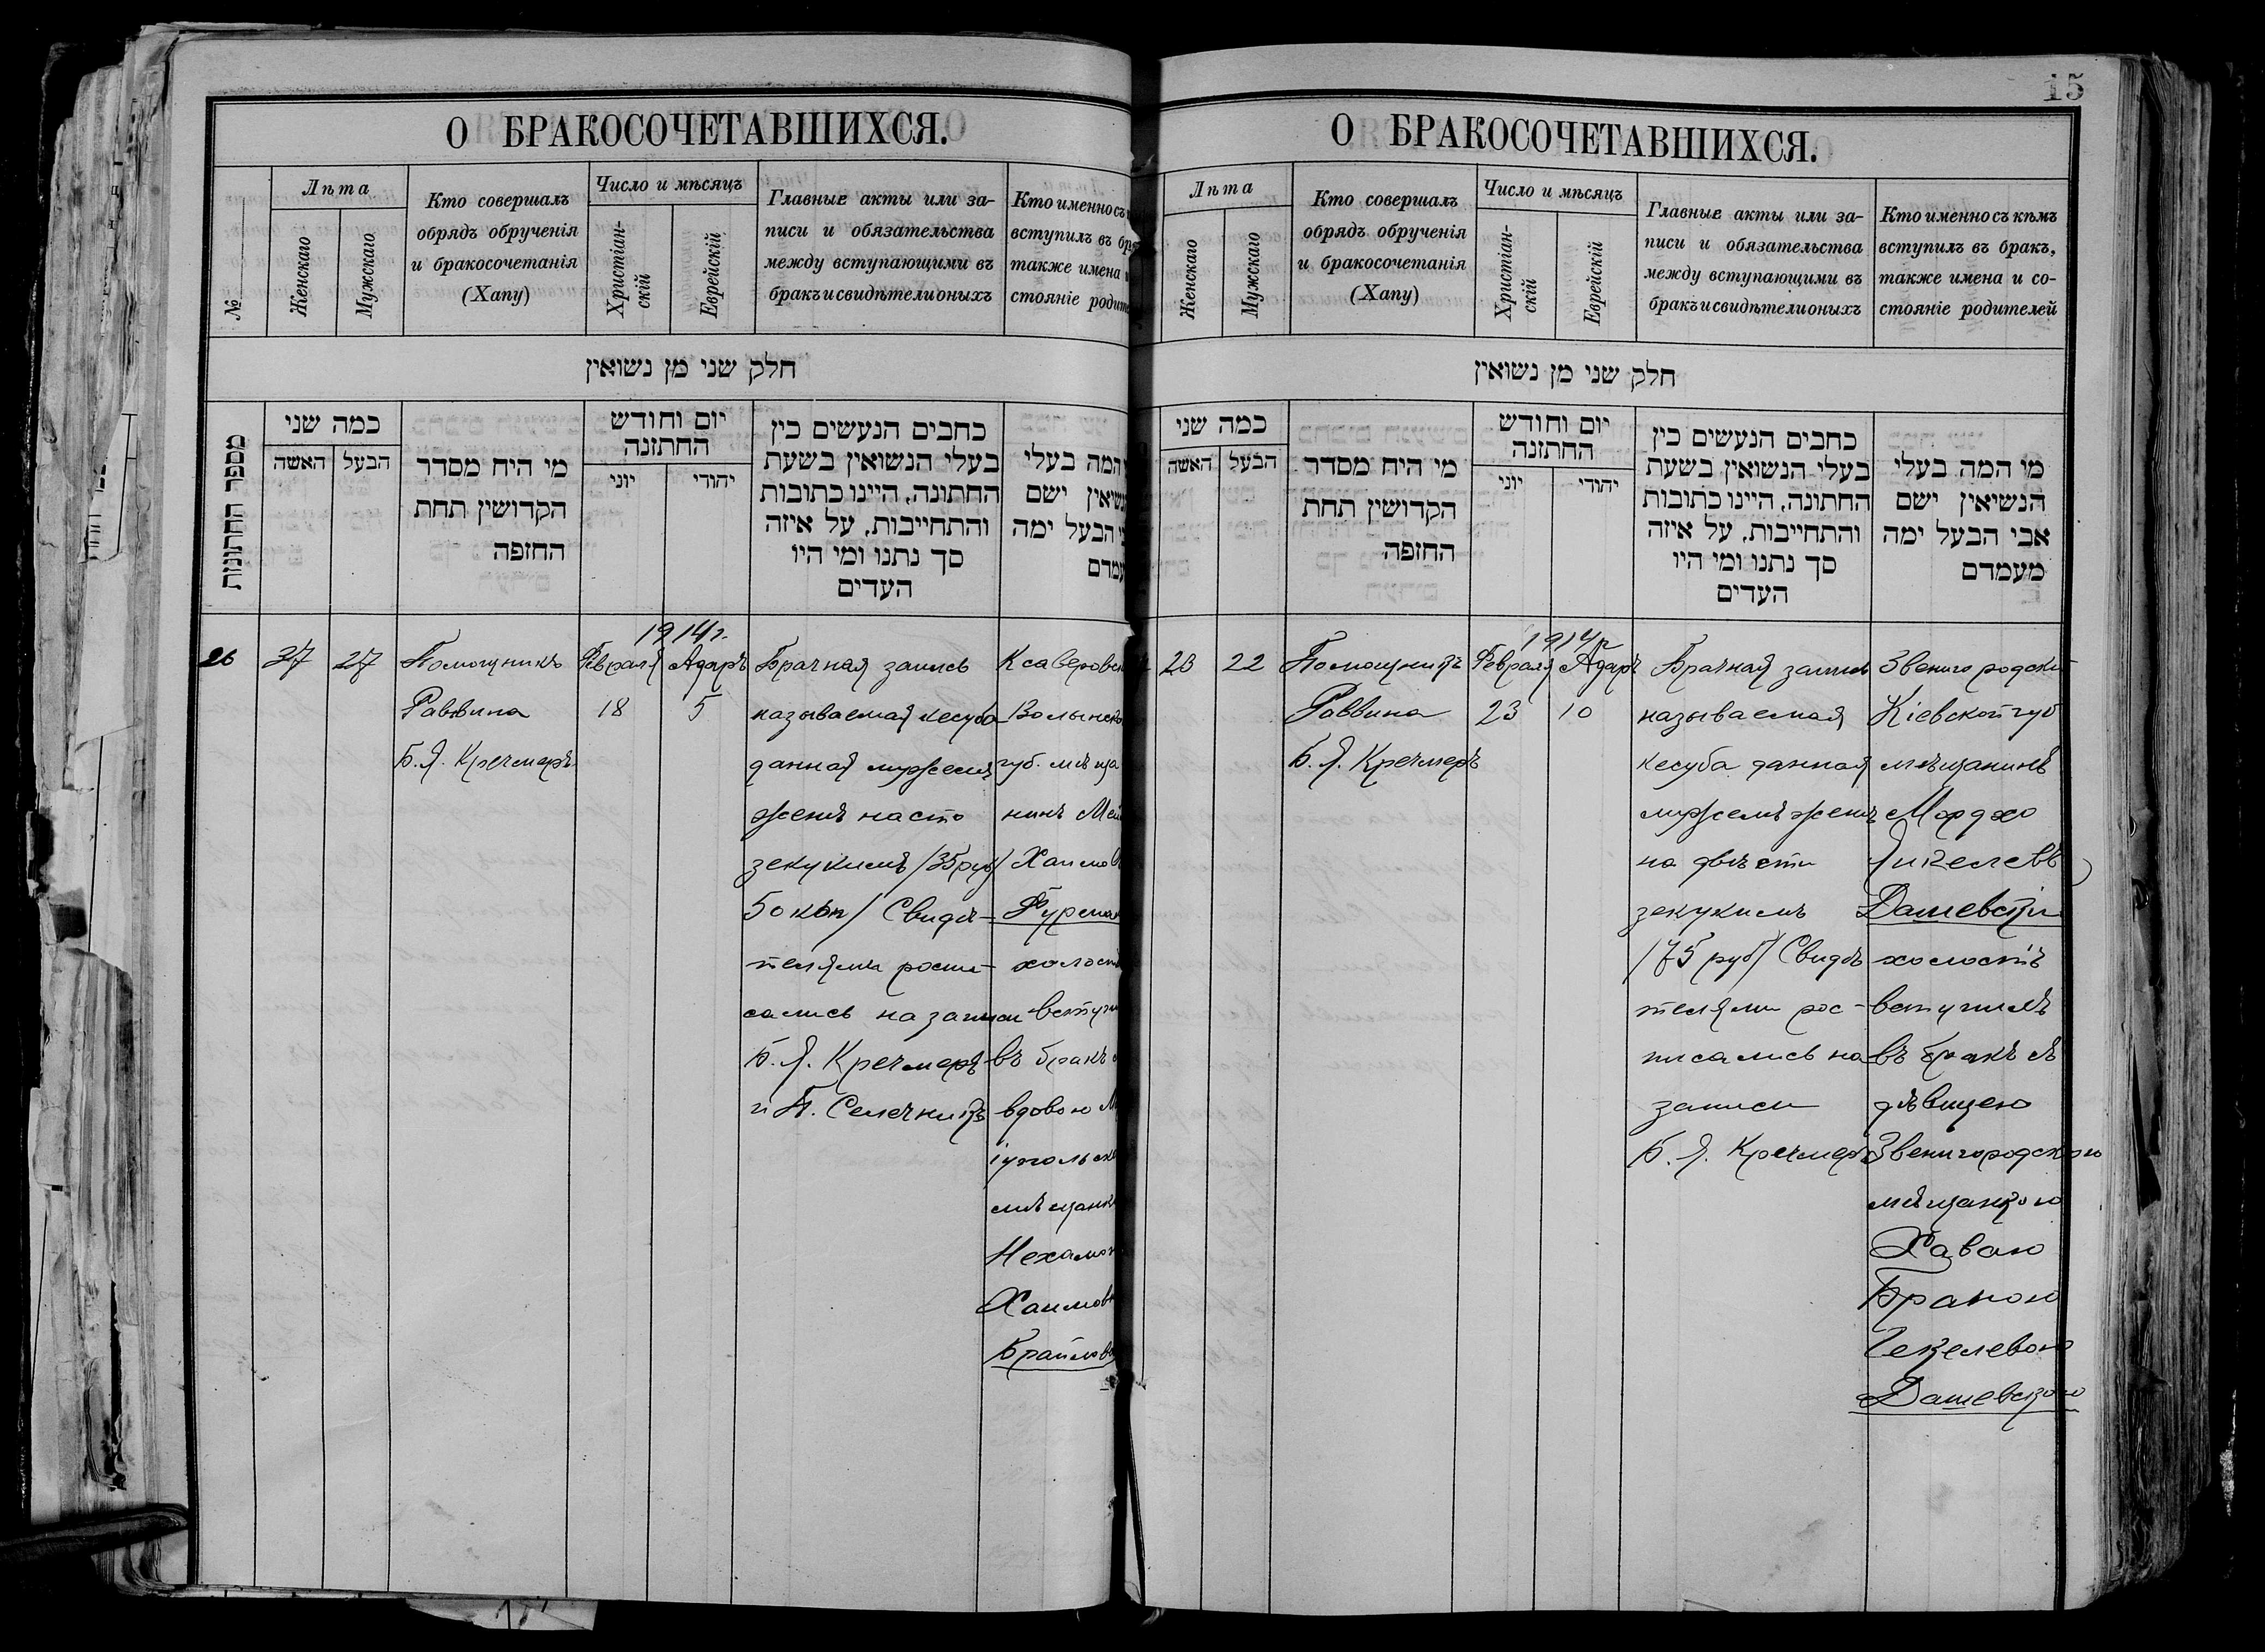 15
О БРАКОСОЧЕТАВШИХСЯ.
№
Лѣта
Женскаго
Мужскаго
Кто совершалъ
обрядъ обрученія
и бракосочетанія
(Хапу)
Число и мѣсяцъ
Христіан-
скій
Еврейскій
Главные акты или за-
писи и обязательства
между вступающими въ
бракъ и свидѣтели оныхъ
Кто именно съ
вступилъ въ бра
также имена и
стояніе родите
חלק שני מן נשואין
מספר החתונות
כמה שני
האשה
הבעל
מי היח מסדר
הקדושין תחת
החזפה
יום וחודש
החתזנה
יוני
יהודי
כחבים הנעשים כין
בעלי הנשואין בשעת
החתונה, היינו כתובות
והתחייבות, על איזה
סך נתנו ומי היו
העדים
המה בעלי
נשיאין ישם
בי הבעל ימה
עמדם
26
37
27
Помощникъ
Раввина
Б. Я. Кречмеръ
1914 г.
Февраля
18
Адаръ
5
Брачная запись
называемая кесуба
данная мужемъ
женѣ на сто
зекукимъ /35 руб
50 коп/ Свидѣ-
телями роспи-
сались на записи
Б. Я. Кречмеръ
и
Ксаверовск
Волынско
губ. мѣща
нинъ Мей
Хаимов
Фурман
холост
вступи
въ бракъ
вдовою М
мѣщанк
Нехамо
Хаимов
Браилов
О БРАКОСОЧЕТАВШИХСЯ.
Лѣта
Женскаго
Мужскаго
Кто совершалъ
обрядъ обрученія
и бракосочетанія
(Хапу)
Число и мѣсяцъ
Христіан-
скій
Еврейскій
Главные акты или за-
писи и обязательства
между вступающими въ
бракъ и свидѣтели оныхъ
Кто именно съ кѣмъ
вступилъ въ бракъ,
также имена и со-
стояніе родителей
חלק שני מן נשואין
כמה שני
האשה
הבעל
מי היח מסדר
הקדושין תחת
החזפה
יום וחודש
החתזנה
יוני
יהודי
כחבים הנעשים כין
בעלי הנשואין בשעת
החתונה, היינו כתובות
והתחייבות, על איזה
סך נתנו ומי היו
העדים
מי המה בעלי
הנשיאין ישם
אבי הבעל ימה
מעמדם
23
22
Помощникъ
Раввина
Б. Я. Кречмеръ
1914 г
Февраля
23
Адаръ
10
Брачная запись
называемая
кесуба данная
мужемъ женѣ
на двѣсти
зекукимъ
/75 руб/ Свидѣ
телями рос-
писались на
записи
Б. Я. Кречмеръ
Звенигородскій
Кіевской губ
мѣщанинъ
Мордхо
Дашевскій
холостъ
вступилъ
въ бракъ съ
дѣвицею
Звенигородскою
мѣщанкою
Хавою
Браною
Дашевскою